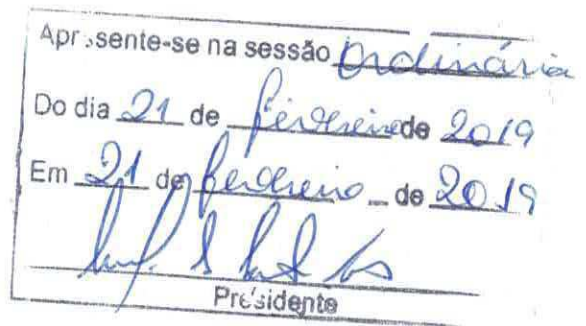 Apresente-se na sessão Ordinária
Do dia 21 de fevereiro de 2019
Em 21 de fevereiro de 2019
Presidente